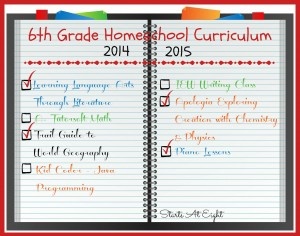 6th Grade Homeschool Curriculum
2014 2015
Learning Language Arts
Through Literature
Tutorsoft Math
Trail Guide to
World Geography
Kid Coder - Java
Programming
Writing Class
Apologia Exploring
Creation with Chemistry
& Physics
Piano Lessons
Starts At Eight